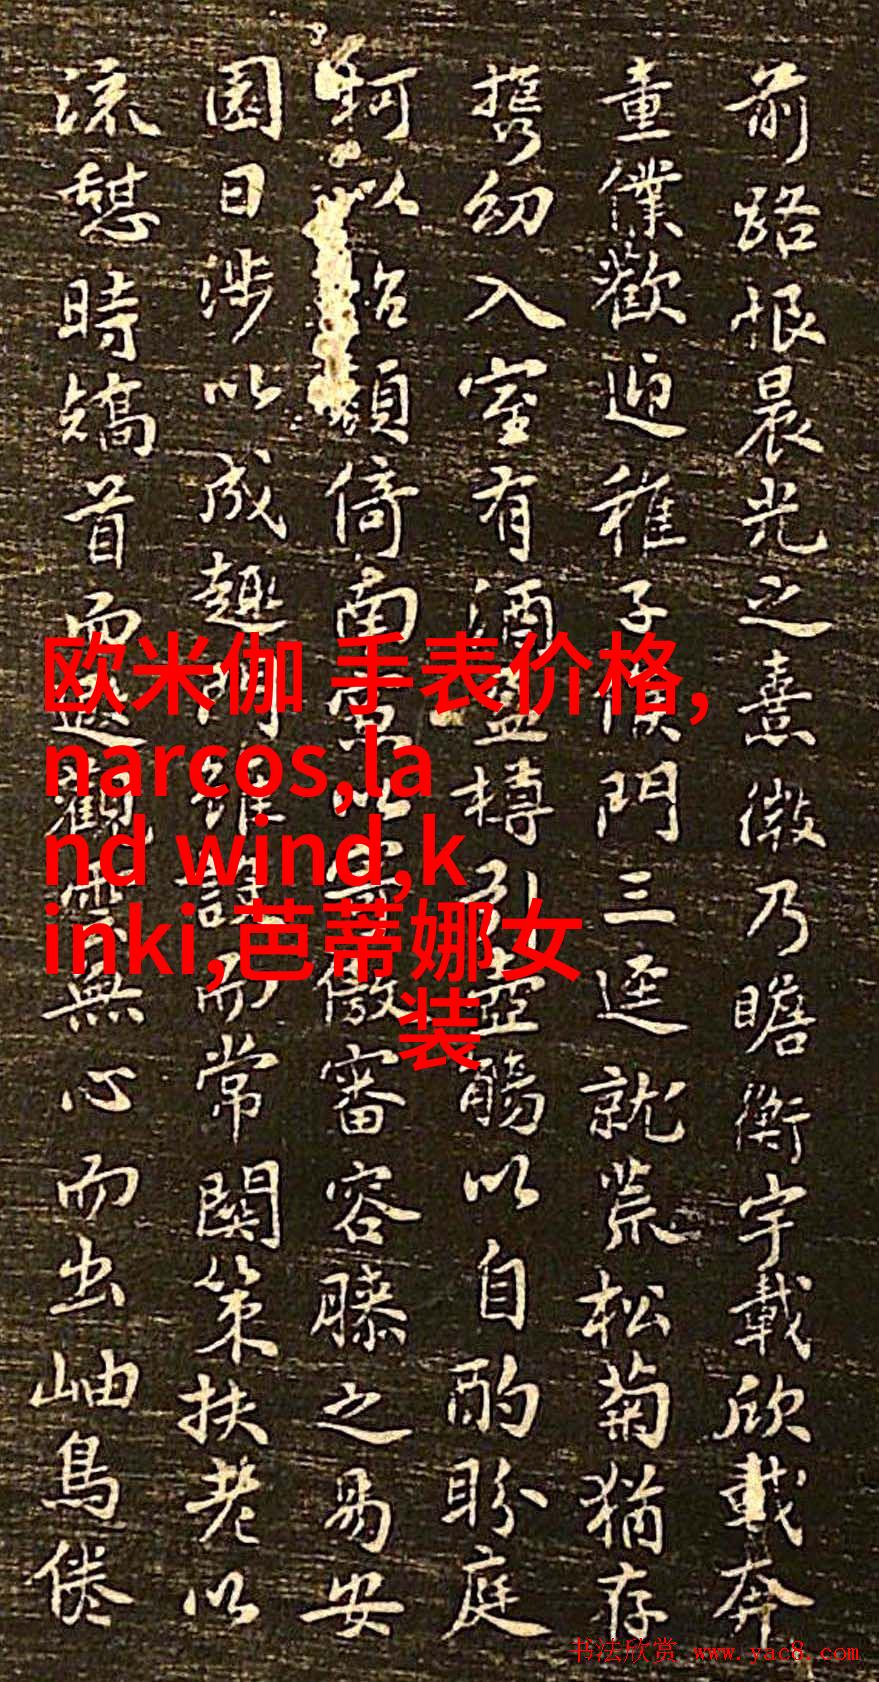 前路恨晨光之熹微乃瞻衡宇載欣載奔
童僕歡迎稚子候門三逕就荒松菊猶存
携幼入室有酒盈樽引壺觴以自酌眄庭
柯以怡顏倚南窗以寄傲審容膝之易安
園日涉以成趣門雖設而常関策扶老以
流憩時矯首而遐觀雲無心而出岫鳥倦
欧米伽 手表价格,
narcos,la
nd wind,k
inki,芭蒂娜女
装
书法欣赏 www.yac8.com